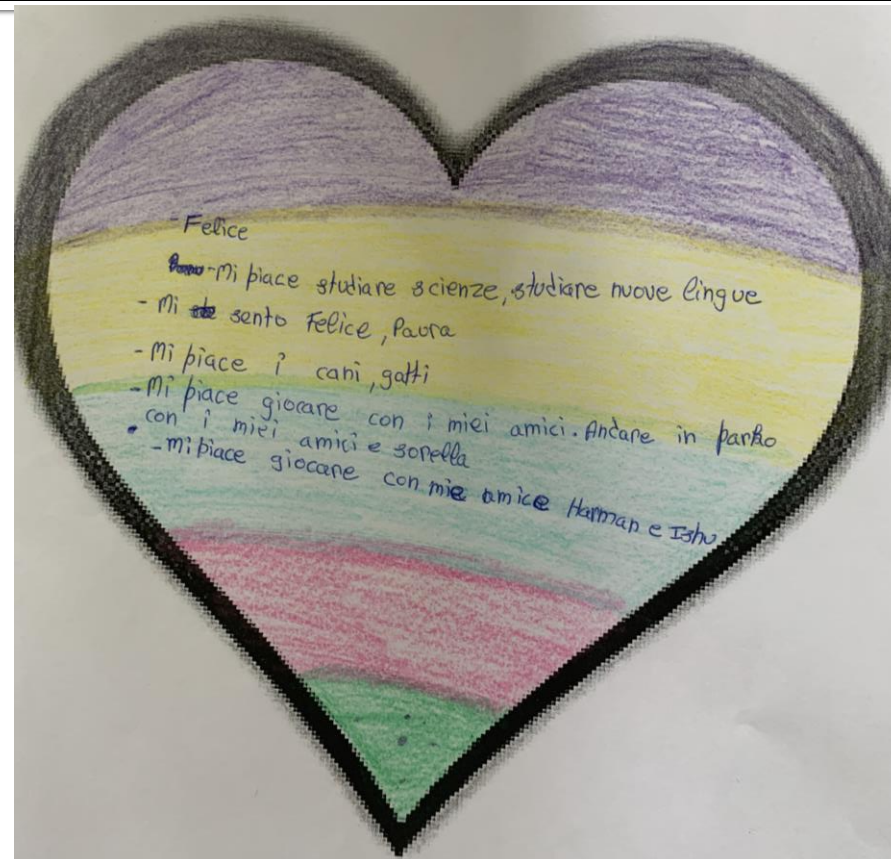 - Felice
-Mi piace studiare scienze, studiare nuove lingue
- Mi sento Felice, Paura
- Mi piace i cani, gatti
- Mi piace giocare con i miei amici. Andare in parko
con i miei amici e sorella
- mi piace giocare con mie amice Harman e Ishu